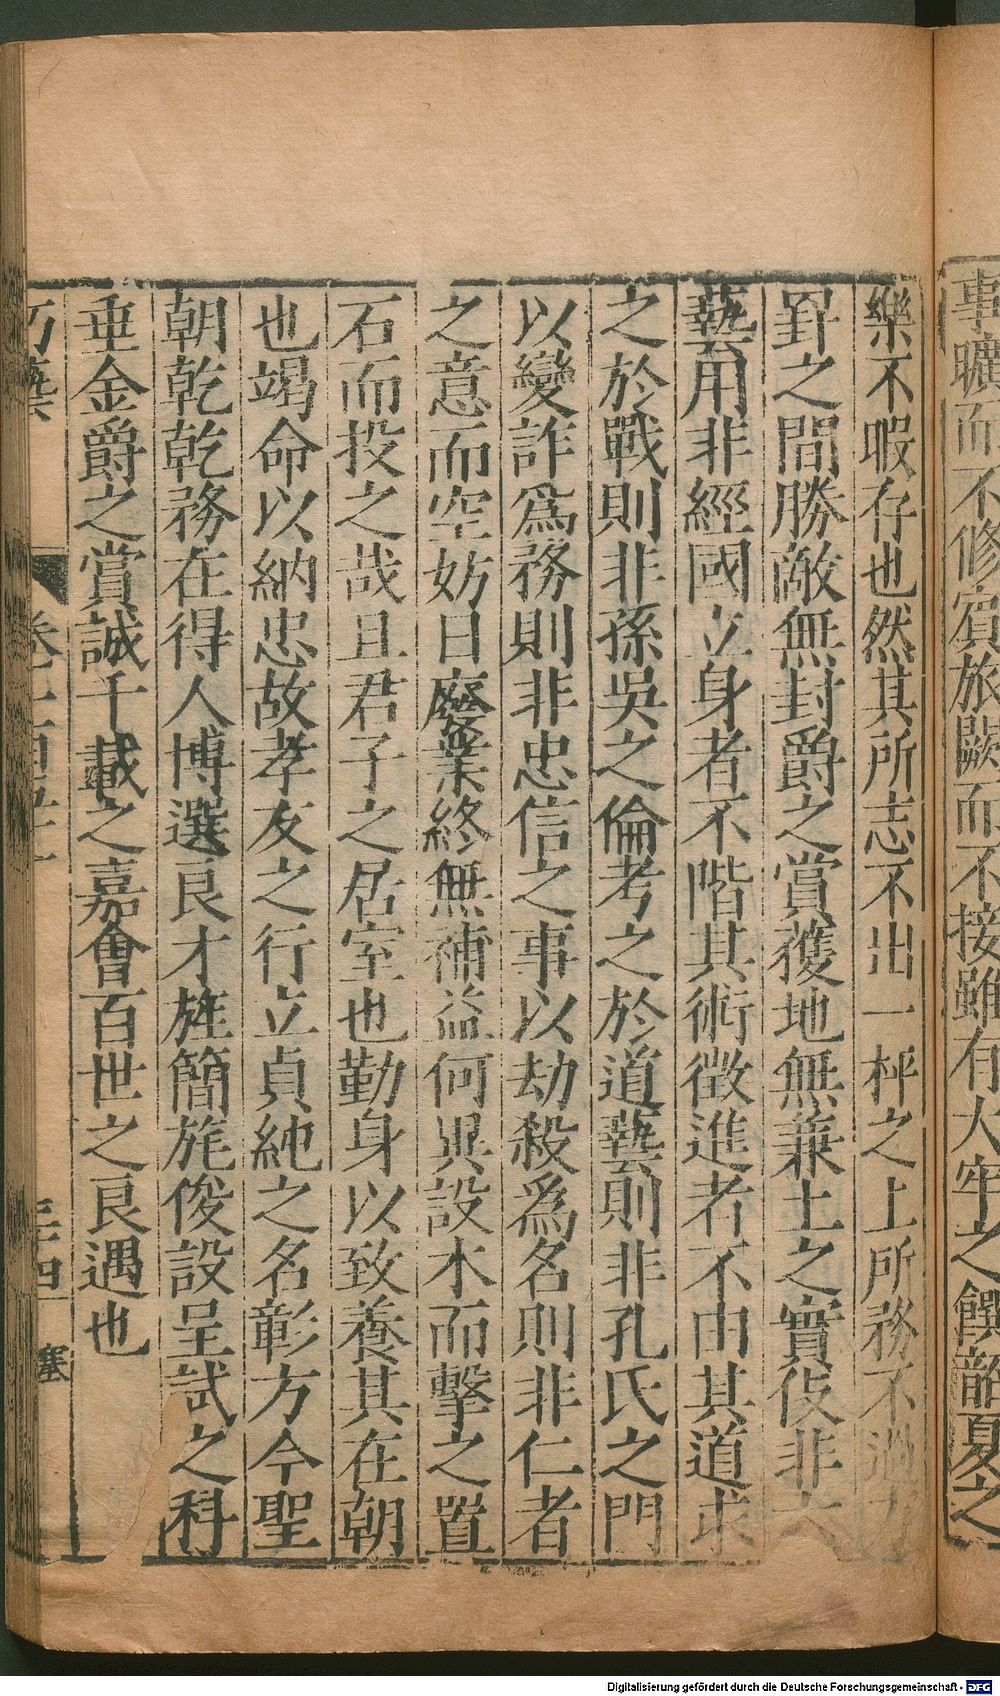 事曠而不修賓旅闕而不接雖有大牢之饌韶夏之
樂不暇存也然其所志不出一枰之上所務不過方
罫之間勝敵無封爵之賞獲地無兼土之實伎非六
藝用非經國立身者不階其術徵進者不由其道求
之於戰則非孫吳之倫考之於道藝則非孔氏之門
以變詐爲務則非忠信之事以劫殺爲名則非仁者
之意而空妨日廢業終無補益何異設木而擊之置
石而投之哉且君子之居室也勤身以致養其在朝
也竭命以納忠故孝友之行立貞純之名彰方今聖
朝乾乾務在得人博選良才旌簡旄俊設呈試之科
垂金爵之賞誠千載之嘉會百世之良遇也
巧藝
三四
Digitalisierung gefördert durch die Deutsche Forschungsgemeinschaft - DFG